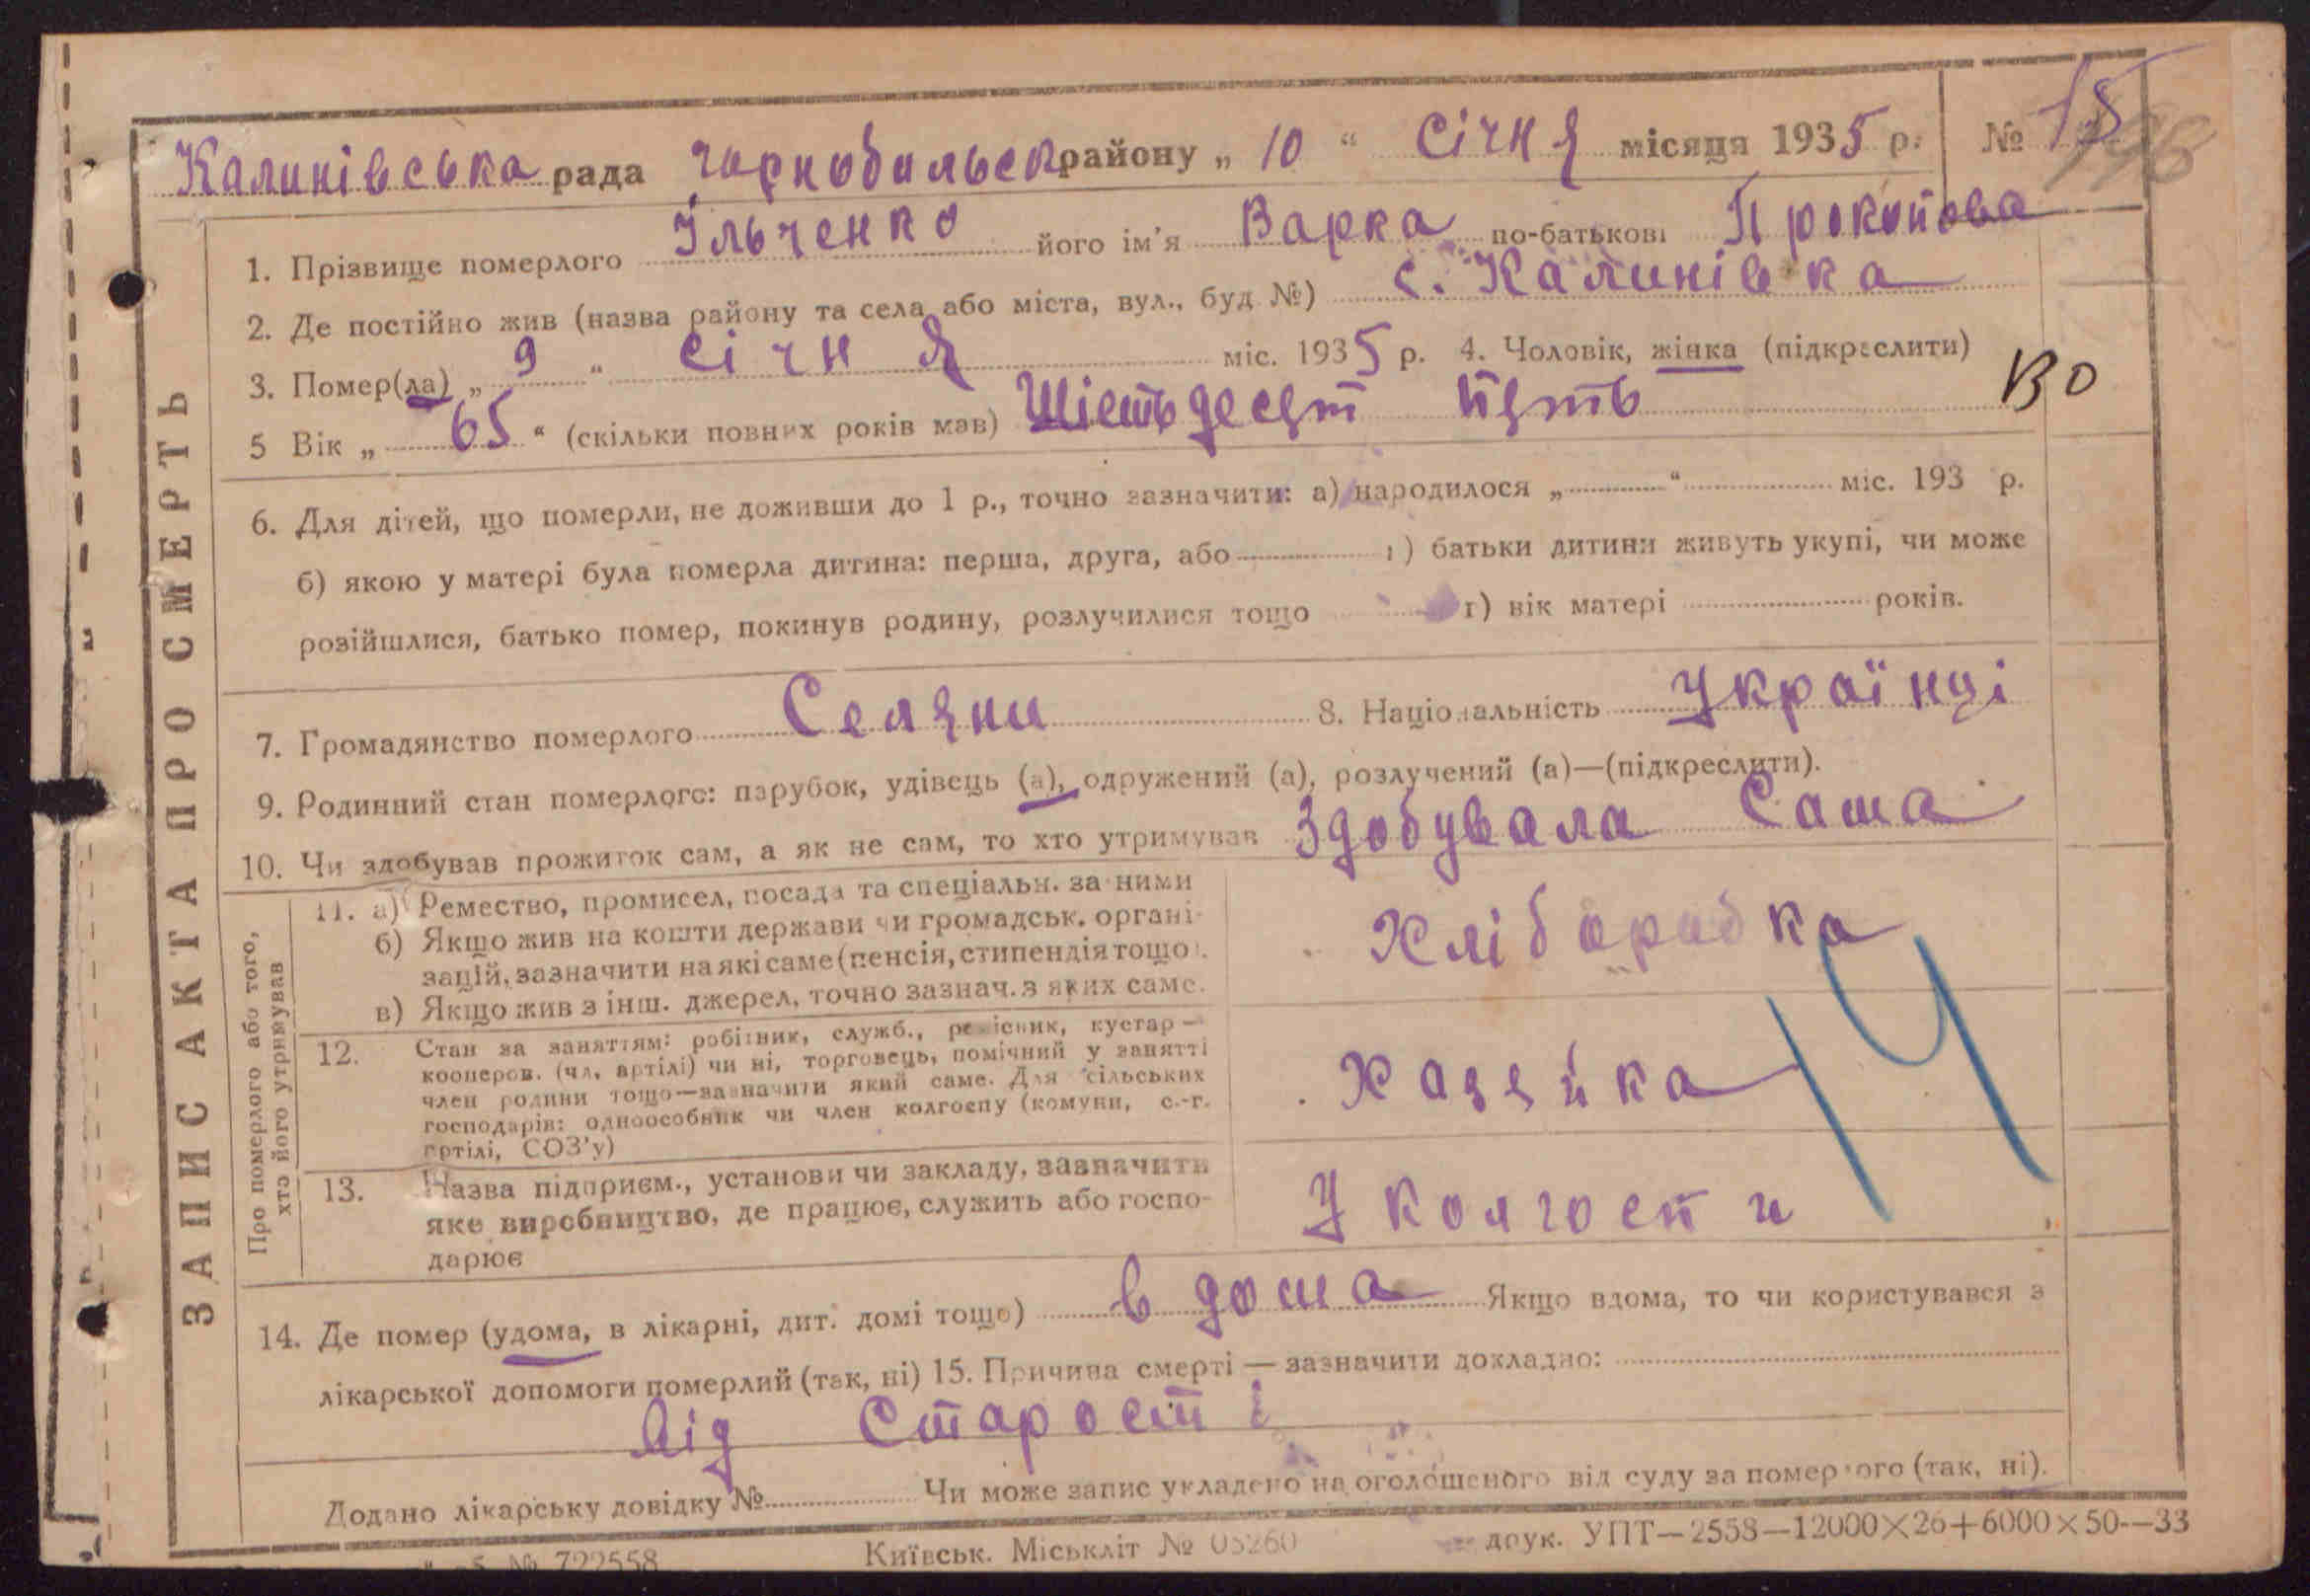 Калинівська рада Чорнобильск району „ 10 “ Січня місяця 1935 р. № 15
198
1. Прізвище померлого Ільченко його ім'я Варка по-батькові Прокопова
2. Де постійно жив (назва району та села або міста, вул., буд №) с. Калинівка
3. Помер(ла) „ 9 “ січня міс. 1935 р. 4. Чоловік, жінка (підкреслити)
во
5 Вік „ 65 “ (скільки повних років мав) Шістьдесят пять
6. Для дітей, що померли, не доживши до 1 р., точно зазначити: а) народилося „ “ міс. 193 р.
б) якою у матері була померла дитина: перша, друга, або ) батьки дитини живуть укупі, чи може
розійшлися, батько помер, покинув родину, розлучилися тощо г) вік матері років.
7. Громадянство померлого Селяни 8. Національність Українці
9. Родинний стан померлого: парубок, удівець (а), одружений (а), розлучений (а)—(підкреслити).
10. Чи здобував прожиток сам, а як не сам, то хто утримував Здобувала Сама
ЗАПИС АКТА ПРО СМЕРТЬ
Про померлого або того,
хто його утримував
11. а) Ремество, промисел, посада та спеціальн. за ними
б) Якщо жив на кошти держави чи громадськ. органі-
зацій, зазначити на які саме (пенсія, стипендія тощо).
в) Якщо жив з інш. джерел, точно зазнач. з яких саме.
Хліборобка
12. Стан за заняттям: робітник, служб., ремісник, кустар —
кооперов. (чл. артілі) чи ні, торговець, помічний у занятті
член родини тощо—зазначити який саме. Для сільських
господарів: одноособник чи член колгоспу (комуни, с.-г.
артілі, СОЗ'у)
Хазяйка
14
13. Назва підприєм., установи чи закладу, зазначити
яке виробництво, де працює, служить або госпо-
дарює
У колгоспи
14. Де помер (удома, в лікарні, дит. домі тощо) в дома Якщо вдома, то чи користувався з
лікарської допомоги померлий (так, ні) 15. Причина смерті — зазначити докладно:
Від Старості
Додано лікарську довідку № Чи може запис укладено на оголошеного від суду за померлого (так, ні).
№ 722558 Київськ. Міськліт № 03260 друк. УПТ—2558—12000×26+6000×50—33